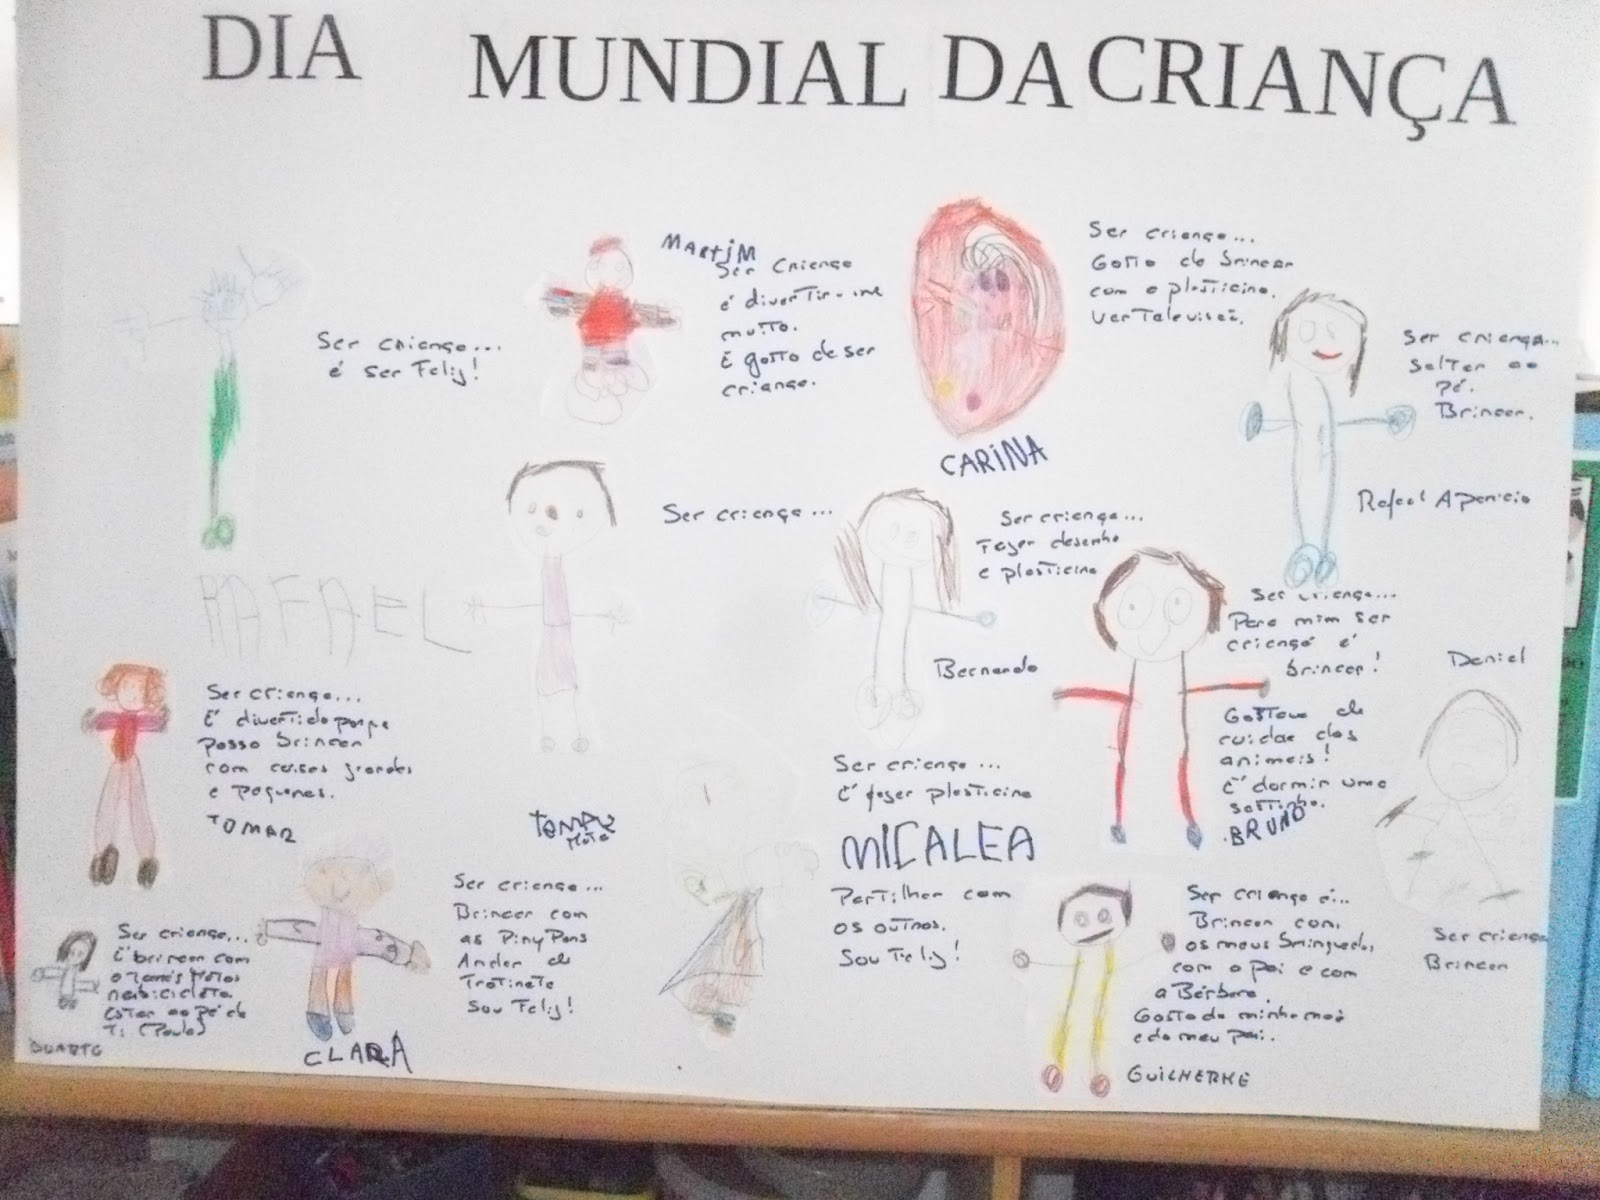 DIA MUNDIAL DA CRIANÇA
Ser criança...
é ser Feliz!
RAFAEL
MARTiM
Ser Criança
é divertir-me
muito.
E gosto de ser
criança.
Ser criança...
Gosto de brincar
com a plasticina.
Ver Televisão.
CARiNA
Ser criança...
Saltar ao
Pé.
Brincar.
Rafael Aparício
Ser criança...
Ser criança...
Fazer desenho
e plasticina
Bernardo
Ser criança...
Para mim ser
criança é
brincar!
Gostava de
cuidar dos
animais!
É dormir uma
BRUNO
Daniel
Ser criança
Brincar
Ser criança...
É divertido porque
posso brincar
com coisas grandes
e pequenas.
TOMAR
Ser criança...
É fazer plasticina
MICALEA
Partilhar com
os outros.
Sou Feliz!
Ser criança...
É brincar com
na bicicleta
Estar ao pé de
Ti (Paula)
DUARTE
Ser criança...
Brincar com
as PinyPons
Andar de
Trotinete
Sou Feliz!
CLARA
Ser criança é...
Brincar com
os meus brinquedos,
com o pai e com
a Bárbara.
Gosto da minha mãe
e do meu pai.
GUiLHERME